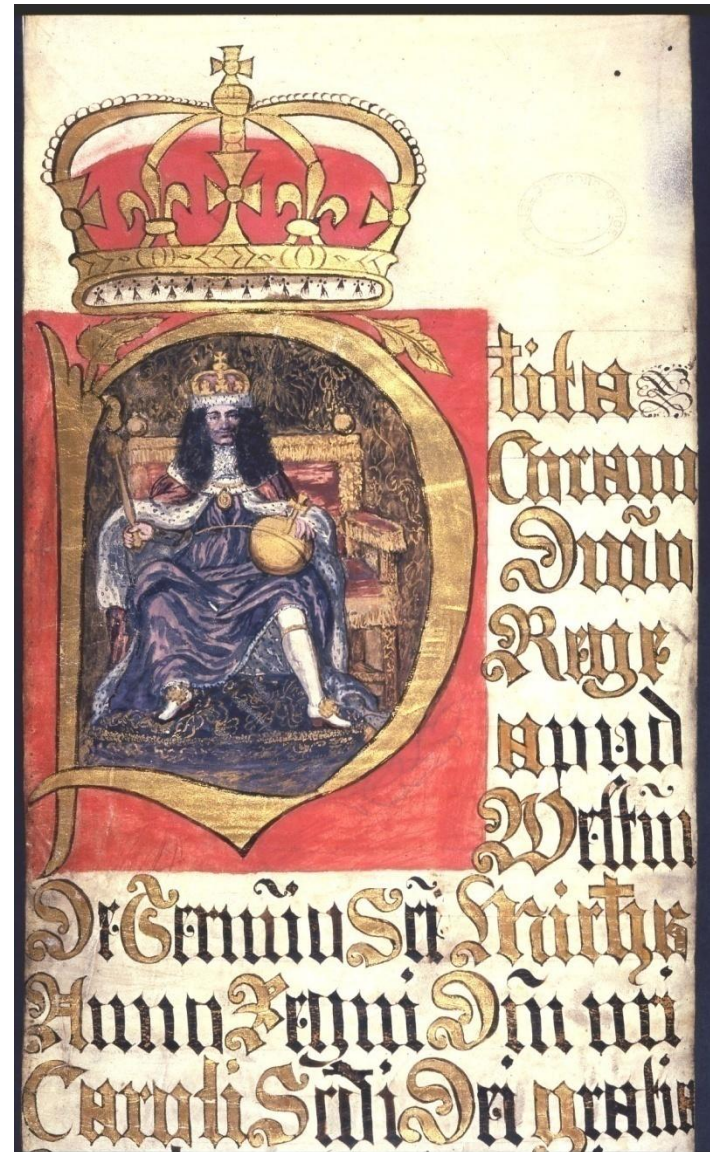 Plita
Coram
Dño
Rege
apud
Westm̃
De Termĩo Sc̃i Michis
Anno Regni Dñi nri
Caroli Scd̃i Dei gratia